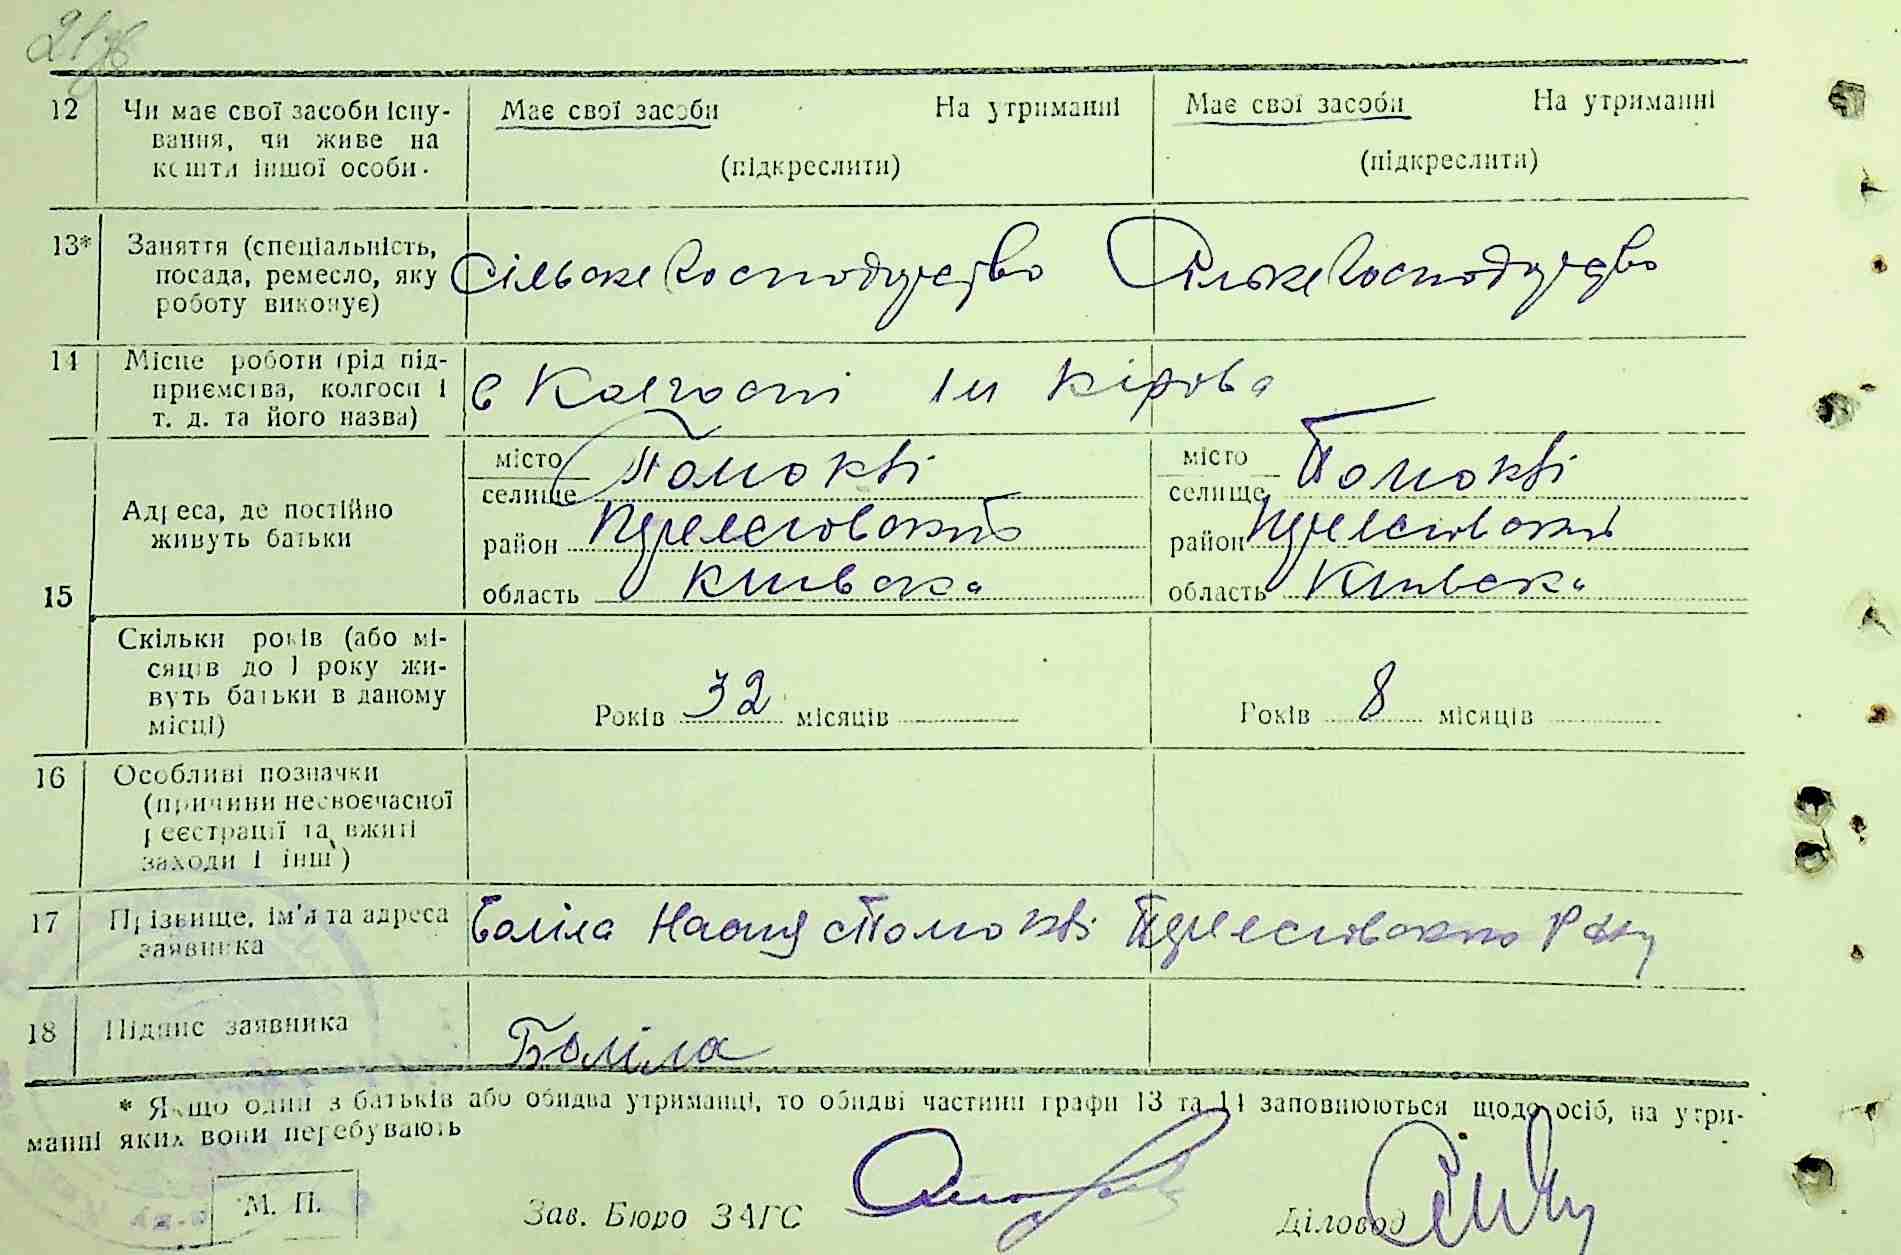 12 Чи має свої засоби існу- Має свої засоби На утриманні Має свої засоби На утриманні
вання, чи живе на
кошти іншої особи. (підкреслити) (підкреслити)
13* Заняття (спеціальність,
посада, ремесло, яку Сільске Господарство Сільске Господарство
роботу виконує)
14 Місце роботи (рід під-
приємства, колгосп і В Колгоспі Ім Кірова
т. д. та його назва)
15 Адреса, де постійно
живуть батьки
місто Помокві місто Помокві
селище селище
район район
область Київска область Київска
Скільки років (або мі-
сяців до 1 року жи-
вуть батьки в даному
місці) Років 32 місяців Років 8 місяців
16 Особливі позначки
(причини несвоєчасної
реєстрації та вжиті
заходи і інш)
17 Прізвище, ім'я та адреса Боліла Настя с Помокві
заявника
18 Підпис заявника Боліла
* Якщо один з батьків або обидва утриманці, то обидві частини графи 13 та 14 заповнюються щодо осіб, на утри-
манні яких вони перебувають
М. П. Зав. Бюро ЗАГС Діловод